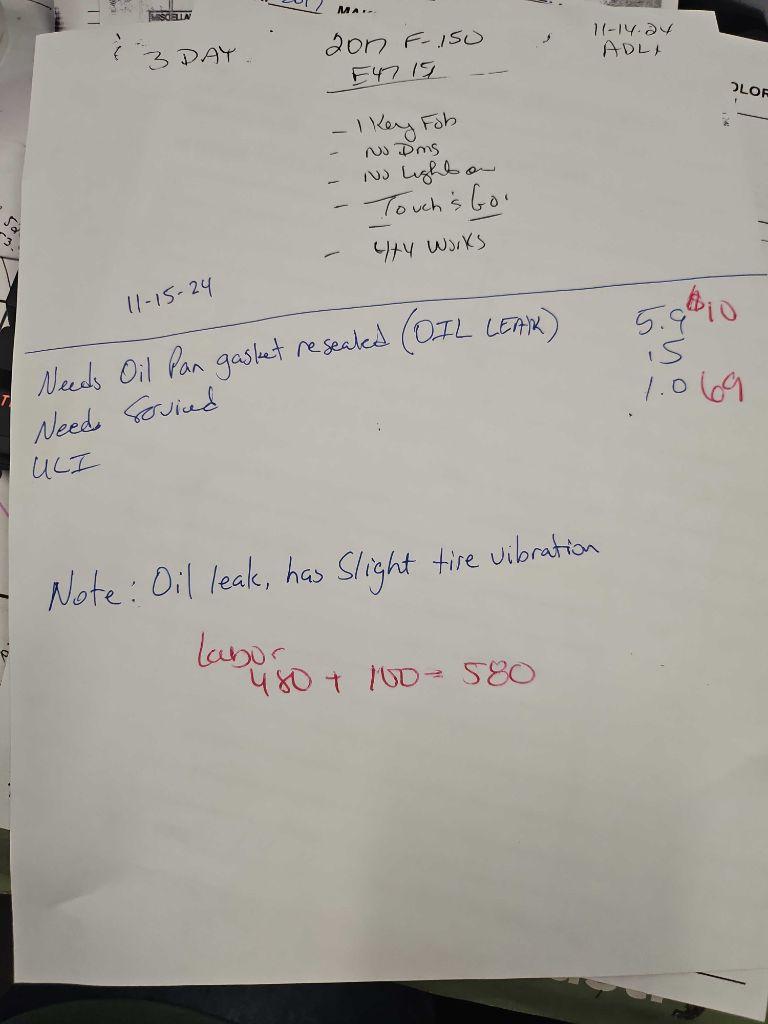 MISCELLA
3 DAY
2017 F-150
11-14-24
E4719
- 1 Key Fob
- No Dmg
- No Lights on
- Touch & Go!
- 4x4 Works
11-15-24
Needs Oil Pan gasket resealed (OIL LEAK) 5.9 $10
Needs Serviced .5
UCI 1.0 69
Note: Oil leak, has Slight tire vibration
Labor
480 + 100 = 580